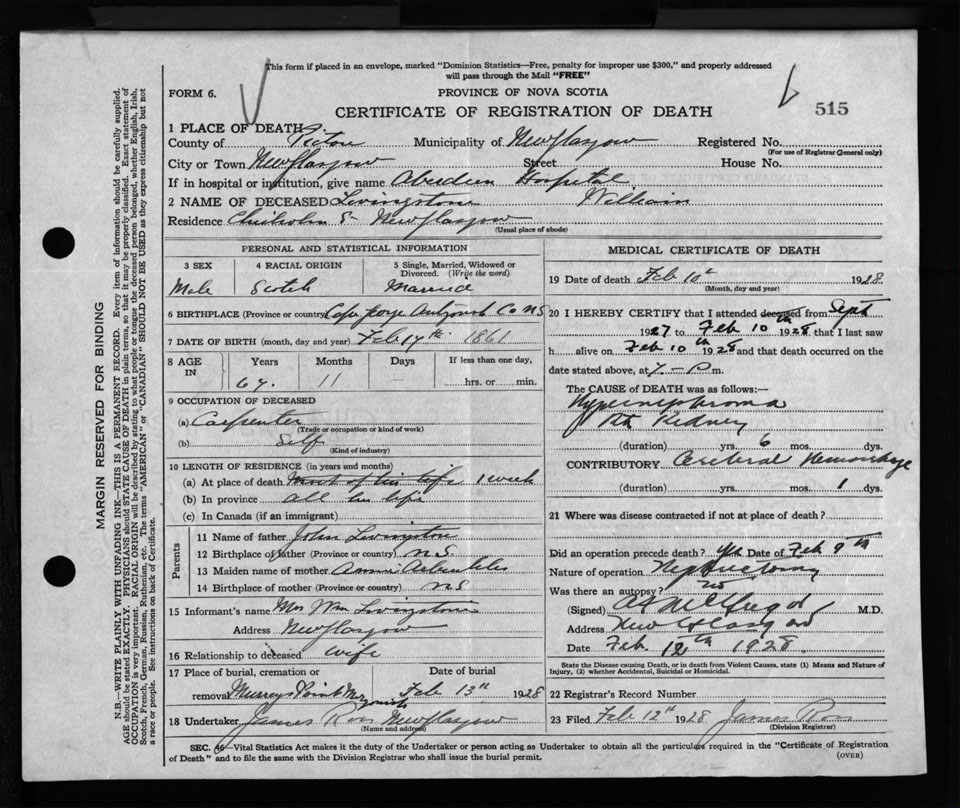 This form if placed in an envelope, marked "Dominion Statistics—Free, penalty for improper use $300," and properly addressed
will pass through the Mail "FREE"
FORM 6.
PROVINCE OF NOVA SCOTIA
CERTIFICATE OF REGISTRATION OF DEATH
515
1 PLACE OF DEATH
County of Pictou Municipality of New Glasgow Registered No.
(For use of Registrar General only)
City or Town New Glasgow Street House No.
If in hospital or institution, give name Aberdeen Hospital
2 NAME OF DECEASED Livingstone William
Residence Chisholm St New Glasgow
(Usual place of abode)
PERSONAL AND STATISTICAL INFORMATION
3 SEX 4 RACIAL ORIGIN 5 Single, Married, Widowed or Divorced. (Write the word)
Male Scotch Married
6 BIRTHPLACE (Province or country) Cape George Antigonish Co NS
7 DATE OF BIRTH (month, day and year) Feb 14th 1861
8 AGE IN Years Months Days If less than one day,
11 hrs. or min.
9 OCCUPATION OF DECEASED
(a) Carpenter
(Trade or occupation or kind of work)
(b) Self
(Kind of industry)
10 LENGTH OF RESIDENCE (in years and months)
(a) At place of death Most of his life 1 week
(b) In province all his life
(c) In Canada (if an immigrant)
Parents
11 Name of father John Livingston
12 Birthplace of father (Province or country) N.S.
13 Maiden name of mother
14 Birthplace of mother (Province or country) N.S.
15 Informant's name Mrs Wm Livingstone
Address New Glasgow
16 Relationship to deceased wife
17 Place of burial, cremation or Date of burial
removal Feb 13th 1928
18 Undertaker James Ross New Glasgow
(Name and address)
MEDICAL CERTIFICATE OF DEATH
19 Date of death Feb 10th 1928
(Month, day and year)
20 I HEREBY CERTIFY that I attended deceased from Sept
1927 to Feb 10th 1928 that I last saw
h alive on Feb 10th 1928 and that death occurred on
date stated above, at 7 - P m.
The CAUSE of DEATH was as follows:—
Hypernephroma
Kidney
(duration) yrs. 6 mos. dys.
CONTRIBUTORY Cerebral Hemorrhage
(duration) yrs. mos. 1 dys.
21 Where was disease contracted if not at place of death?
Did an operation precede death? Yes Date of Feb 9th
Nature of operation Nephrectomy
Was there an autopsy? no
(Signed) M.D.
Address New Glasgow
Date Feb. 12th 1928.
State the Disease causing Death, or in death from Violent Causes, state (1) Means and Nature of
Injury, (2) whether Accidental, Suicidal or Homicidal.
22 Registrar's Record Number
23 Filed Feb 12th 1928 James Ross
(Division Registrar)
SEC. 46—Vital Statistics Act makes it the duty of the Undertaker or person acting as Undertaker to obtain all the particulars required in the "Certificate of Registration
of Death" and to file the same with the Division Registrar who shall issue the burial permit. (OVER)
MARGIN RESERVED FOR BINDING
N.B.—WRITE PLAINLY WITH UNFADING INK—THIS IS A PERMANENT RECORD. Every item of information should be carefully supplied.
AGE should be stated EXACTLY. PHYSICIANS should STATE CAUSE OF DEATH in plain terms, so that it may be properly classified. Exact statement of
OCCUPATION is very important. RACIAL ORIGIN will be described by stating to what people or tongue the deceased person belonged, whether English, Irish,
Scotch, French, German, Russian, Ruthenian, etc. The terms "AMERICAN" or "CANADIAN" SHOULD NOT BE USED as they express citizenship but not
a race or people. See instructions on back of Certificate.